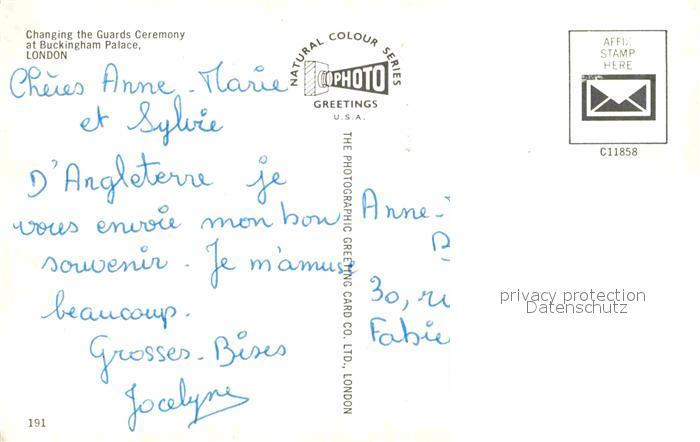 Changing the Guards Ceremony
at Buckingham Palace,
LONDON
Chères Anne-Marie
et Sylvie
D'Angleterre je
vous envoie mon bon
souvenir. Je m'amuse
beaucoup.
Grosses-Bises
Jocelyne
191
NATURAL COLOUR SERIES
PHOTO
GREETINGS
U.S.A.
THE PHOTOGRAPHIC GREETING CARD CO. LTD., LONDON
AFFIX
STAMP
HERE
C11858
Anne-
30, ru
Fabie
privacy protection
Datenschutz